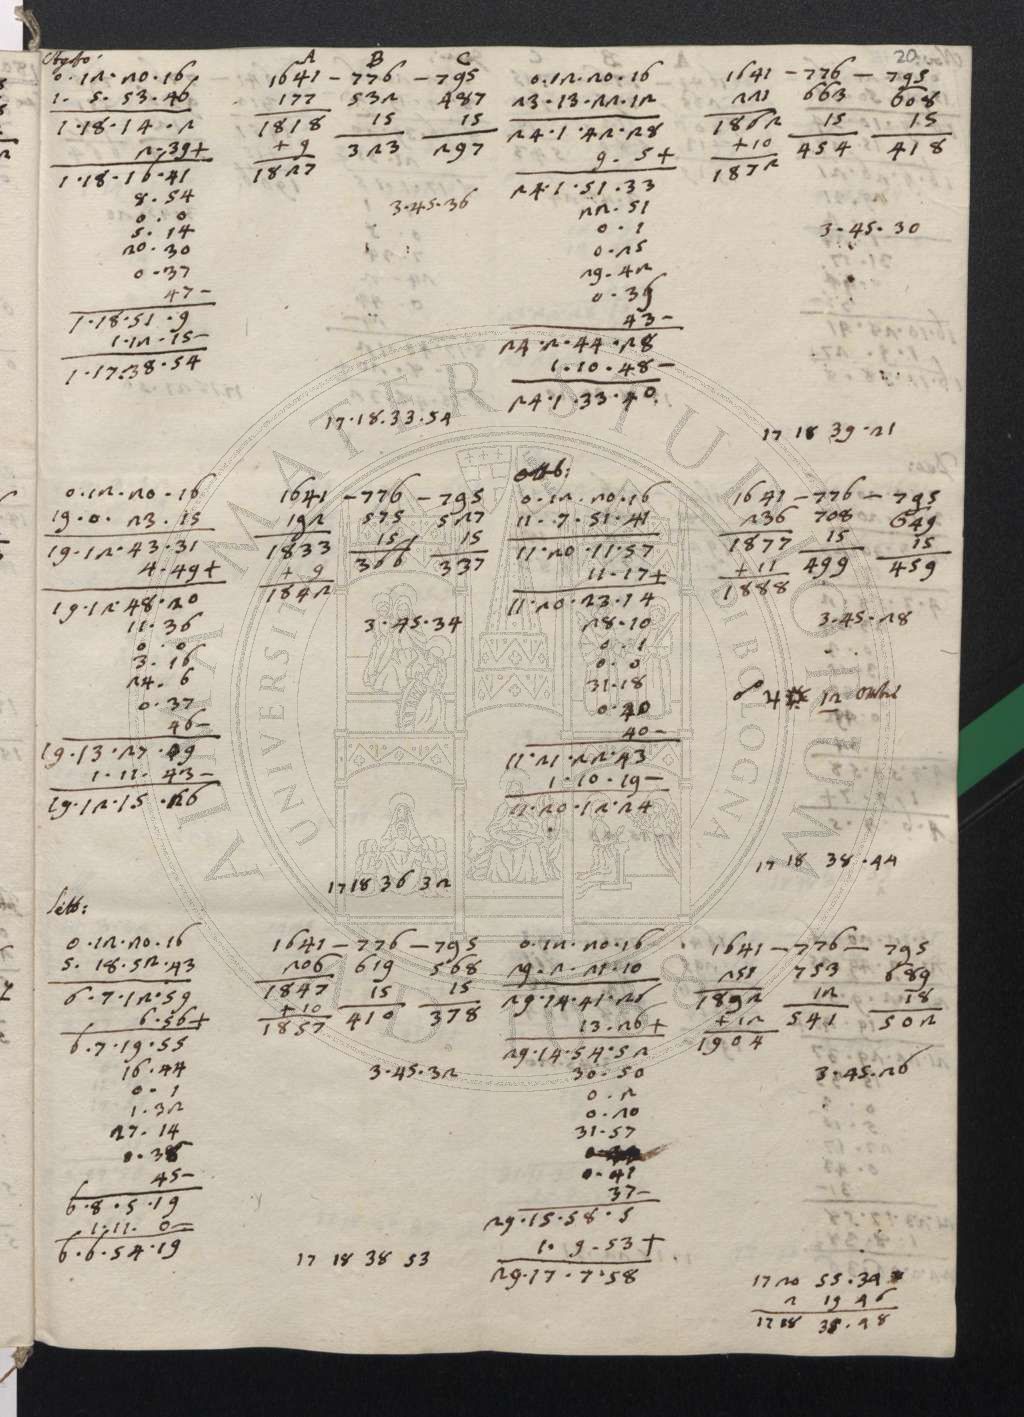 20
Agosto:
0.12.20.16
1. 5. 53.46
1.18.14.2
2.39+
1.18.16.41
8.54
0.0
5.14
20.30
0.37
47-
1.18.51.9
1.12.15-
1.17.38.54
A B C
1641 - 776 - 795
177 532 487
1818 15 15
+9 323 297
1827
3.45.36
17.18.33.54
0.12.20.16
23.13.22.12
24.1.42.28
9.5+
24.1.51.33
22.51
0.1
0.25
29.42
0.39
43-
24.2.44.28
1.10.48-
24.1.33.40
1641 - 776 - 795
221 663 608
1862 15 15
+10 454 418
1872
3.45.30
17 18 39.21
0.12.20.16
19.0.23.15
19.12.43.31
4.49+
19.12.48.20
11.36
0.0
3.16
24.6
0.37
46-
19.13.27.09
1.11.43-
19.12.15.26
1641 - 776 - 795
192 575 527
1833 15 15
+9 366 337
1842
3.45.34
17 18 36 32
ottb:
0.12.20.16
11.7.51.41
11.20.11.57
11.17+
11.20.23.14
28.10
0.1
0.0
31.18
0.40
40-
11.21.22.43
1.10.19-
11.20.12.24
1641 - 776 - 795
236 708 649
1877 15 15
+11 499 459
1888
3.45.28
☍ ♃ 12
17 18 38.44
Settb:
0.12.20.16
5.18.52.43
6.7.12.59
6.56+
6.7.19.55
16.44
0.1
1.32
27.14
0.38
45-
6.8.5.19
1.11.0-
6.6.54.19
1641 - 776 - 795
206 619 568
1847 15 15
+10 410 378
1857
3.45.32
17 18 38 53
0.12.20.16
29.2.21.10
29.14.41.26
13.26+
29.14.54.52
30.50
0.2
0.20
31.57
0.41
37-
29.15.58.5
1.9.53+
29.17.7.58
1641 - 776 - 795
251 753 689
1892 12 18
+12 541 502
1904
3.45.26
17 20 55.34
2 19 46
17 18 35.48
ALMA MATER STUDIORUM
UNIVERSITÀ DI BOLOGNA